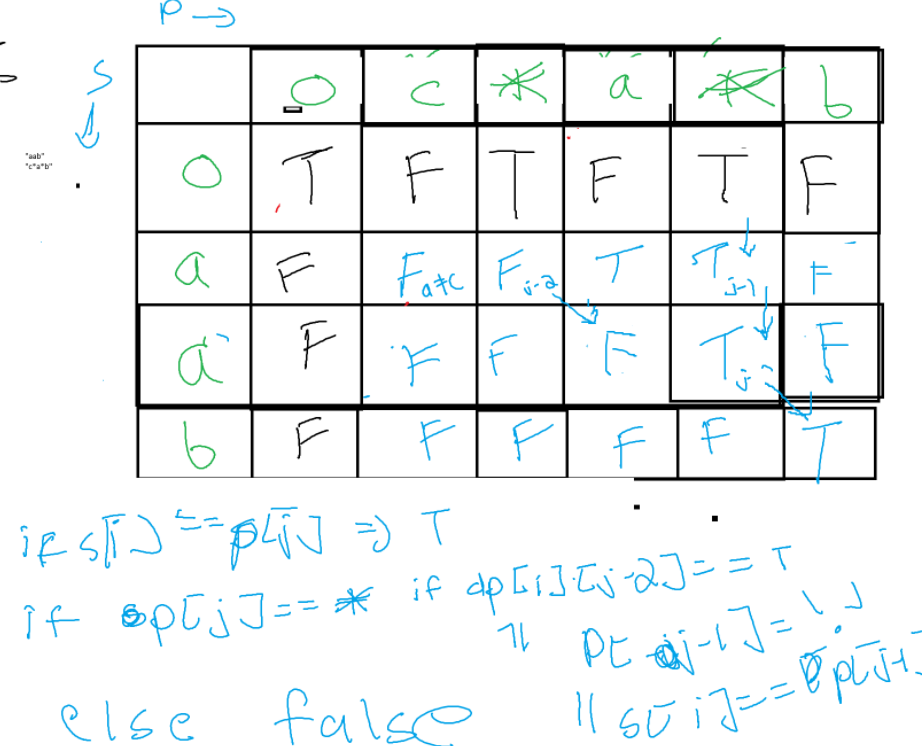 P →
S
0 c * a * b
"aab"
"c*a*b"
0 T F T F T F
a F F a≠c F j-2 T T j-1 F
a F F F F T j- F
b F F F F F T
if s[i] == p[j] => T
if p[j] == * if dp[i][j-2] == T
|| p[j-1] = '.'
|| s[i] == p[j-1]
else false